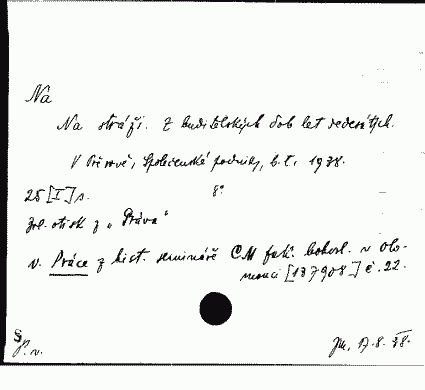 Na
Na stráži. Z buditelských dob let šedesátých.
V Přerově, Společenské podniky, b.r., 1938.
25 [I] s. 8°
Zvl. otisk z „Práva“
v. Práce z hist. semináře CM fak. bohosl. v Olo-
mouci [137908] č. 22.
P. v.
17.8.38.